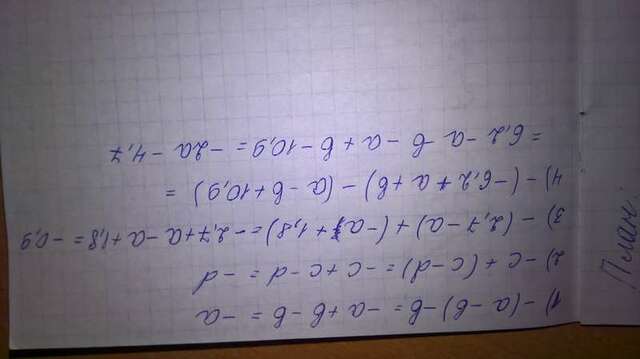 1) -(a-b)-b = -a+b-b = -a
2) -c+(c-d) = -c+c-d = -d
3) -(2,7-a)+(-a+1,8) = -2,7+a-a+1,8 = -0,9
4) -(-6,2+a+b)-(a-b+10,9) =
= 6,2-a-b-a+b-10,9 = -2a-4,7
План: